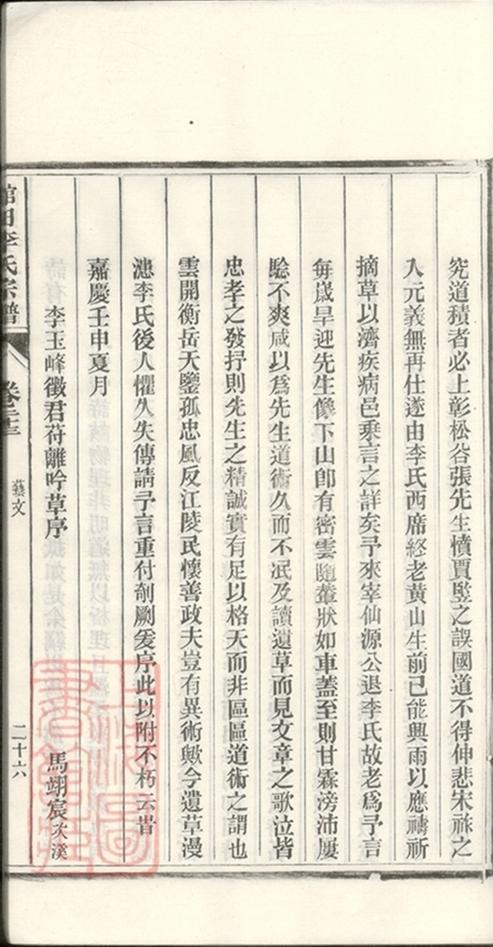 究道積者必上彰松谷張先生憤賈堅之誤國道不得伸悲宋祚之
入元義無再仕遂由李氏西席終老黃山生前已能興雨以應禱祈
摘草以濟疾病邑乘言之詳矣予來宰仙源公退李氏故老爲予言
每歲旱迎先生像下山卽有密雲隨輦狀如車蓋至則甘霖滂沛屢
驗不爽咸以爲先生道術久而不泯及讀遺草而見文章之歌泣皆
忠孝之發抒則先生之精誠實有足以格天而非區區道術之謂也
雲開衡岳天鑒孤忠風反江陵民懷善政夫豈有異術歟今遺草漫
漶李氏後人懼久失傳請予言重付剞劂爰序此以附不朽云旹
嘉慶壬申夏月
李玉峰徵君苻離吟草序
馬翊宸次溪
館田李氏宗譜 卷二十三 藝文 二十六